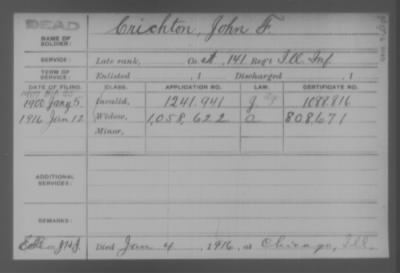 DEAD
NAME OF SOLDIER: Crichton, John F.
SERVICE: Late rank, Co. A, 141 Reg't Ill. Inf.
TERM OF SERVICE: Enlisted , 1 Discharged , 1
DATE OF FILING. CLASS. APPLICATION NO. LAW. CERTIFICATE NO.
1900 Jan'y 5. Invalid, 1241.941 g 1088816
1916 Jan 12 Widow, 1,058,622 a 808,671
Minor,
ADDITIONAL SERVICES:
REMARKS:
Died Jan 4, 1916, at Chicago, Ill.